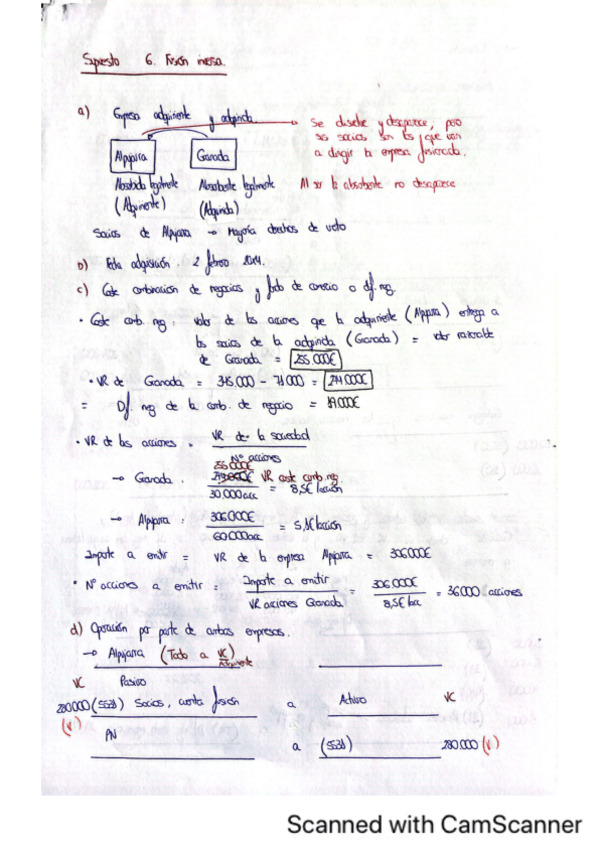 Supuesto 6. Fusión inversa.
a) Empresa adquirente y adquirida.
Se disuelve y desaparece, pero
sus socios son los que van
a dirigir la empresa fusionada.
Alpujarra
Granada
Absorbida legalmente
(Adquirente)
Absorbente legalmente
(Adquirida)
Al ser la absorbente no desaparece
Socios de Alpujarra → Mayoría derechos de voto
b) Fecha adquisición. 2 febrero 2014.
c) Coste combinación de negocios y fondo de comercio o df. neg.
· Coste comb. neg: valor de las acciones que la adquirente (Alpujarra) entrega a
los socios de la adquirida (Granada) = valor razonable
de Granada = 255.000€
· VR de Granada = 345.000 - 71.000 = 274.000€
= Df. neg de la comb. de negocio = 19.000€
· VR de las acciones = VR de la sociedad
Nº acciones
→ Granada: 255.000€ VR coste comb. neg.
30.000 acc = 8,5€/acción
→ Alpujarra: 306.000€
60.000 acc = 5,1€/acción
Importe a emitir = VR de la empresa Alpujarra = 306.000€
· Nº acciones a emitir = Importe a emitir = 306.000€ = 36.000 acciones
VR acciones Granada 8,5€/acc
d) Operación por parte de ambas empresas.
→ Alpujarra (Todo a VC)
Adquirente
VC Pasivo
280.000 (5531) Socios, cuenta fusión a Activo VC
(V) PN
a (5531) 280.000 (V)
Scanned with CamScanner